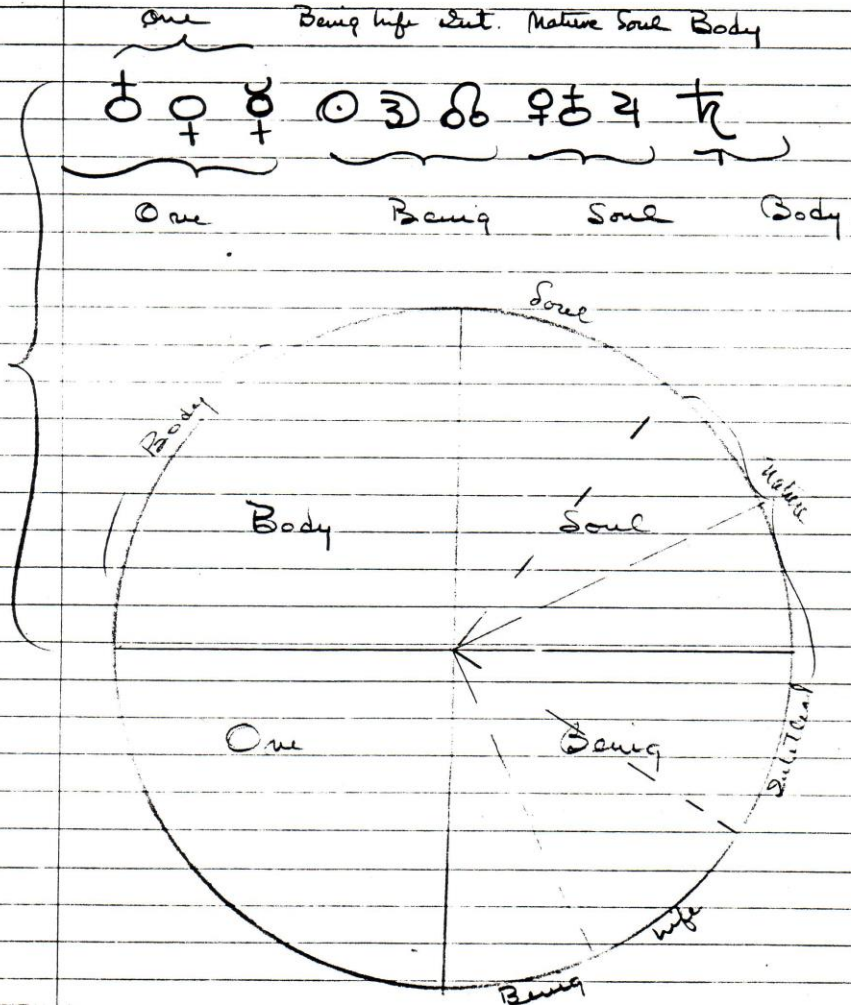 One Being Life Int. Nature Soul Body
♁ ♀ ☿ ☉ ☽ ☊ ♀ ♁ ♃ ♄
One Being Soul Body
Soul
Body
Nature
Body Soul
One Being
Intellect
Life
Being